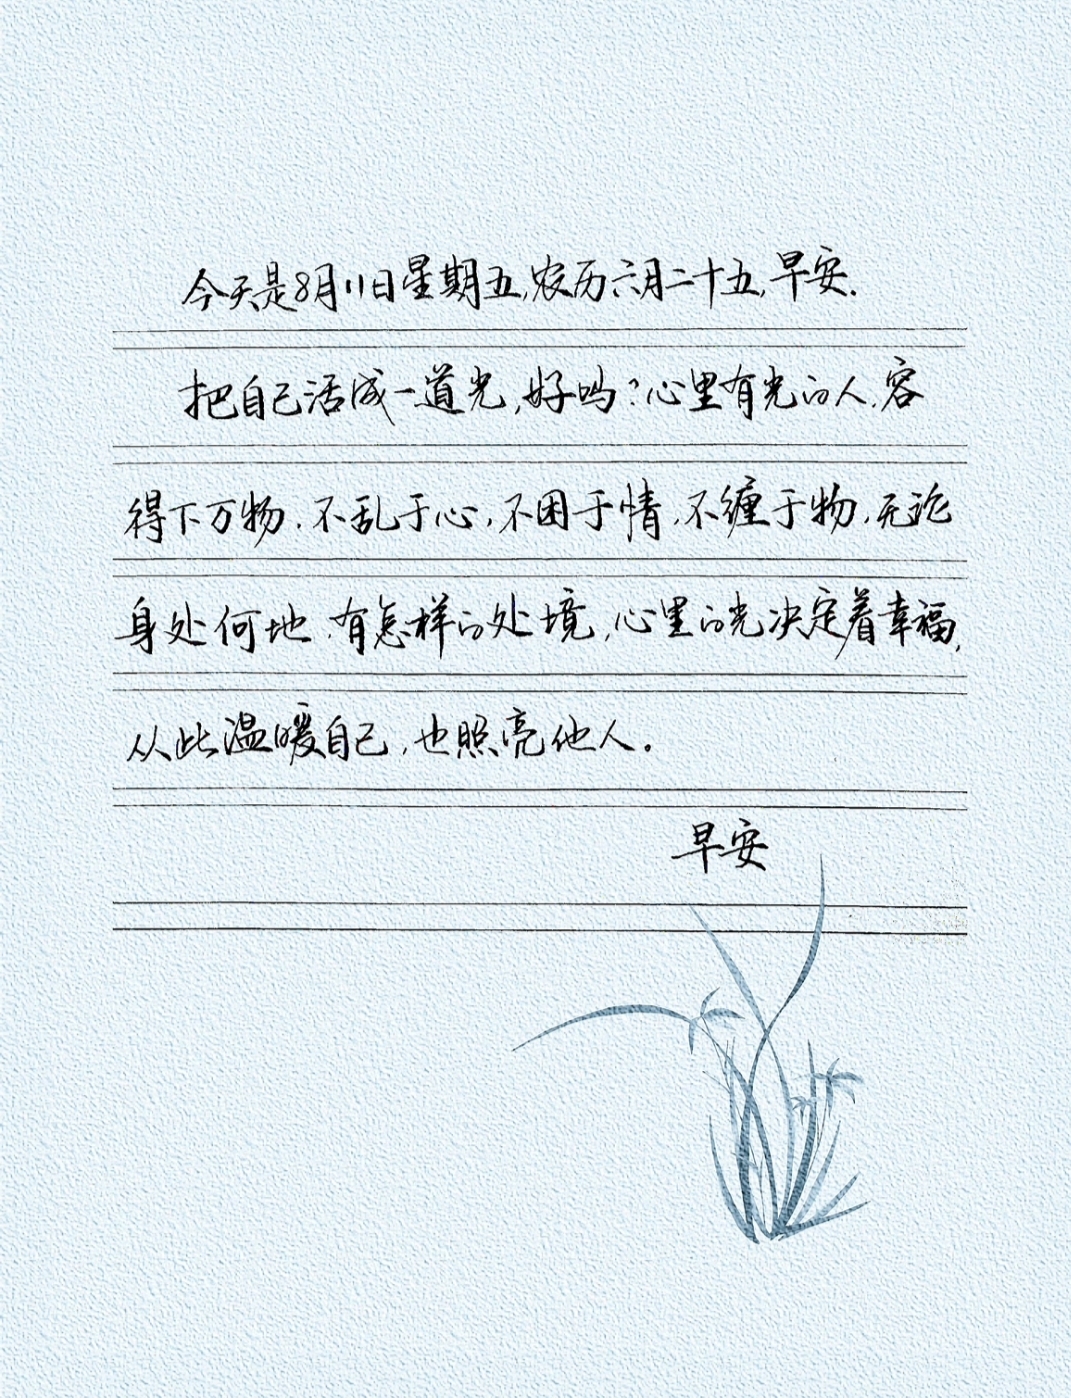 今天是8月11日星期五,农历六月二十五,早安.
把自己活成一道光,好吗?心里有光的人,容
得下万物.不乱于心,不困于情,不缠于物,无论
身处何地.有怎样的处境,心里的光决定着幸福,
从此温暖自己,也照亮他人。
早安